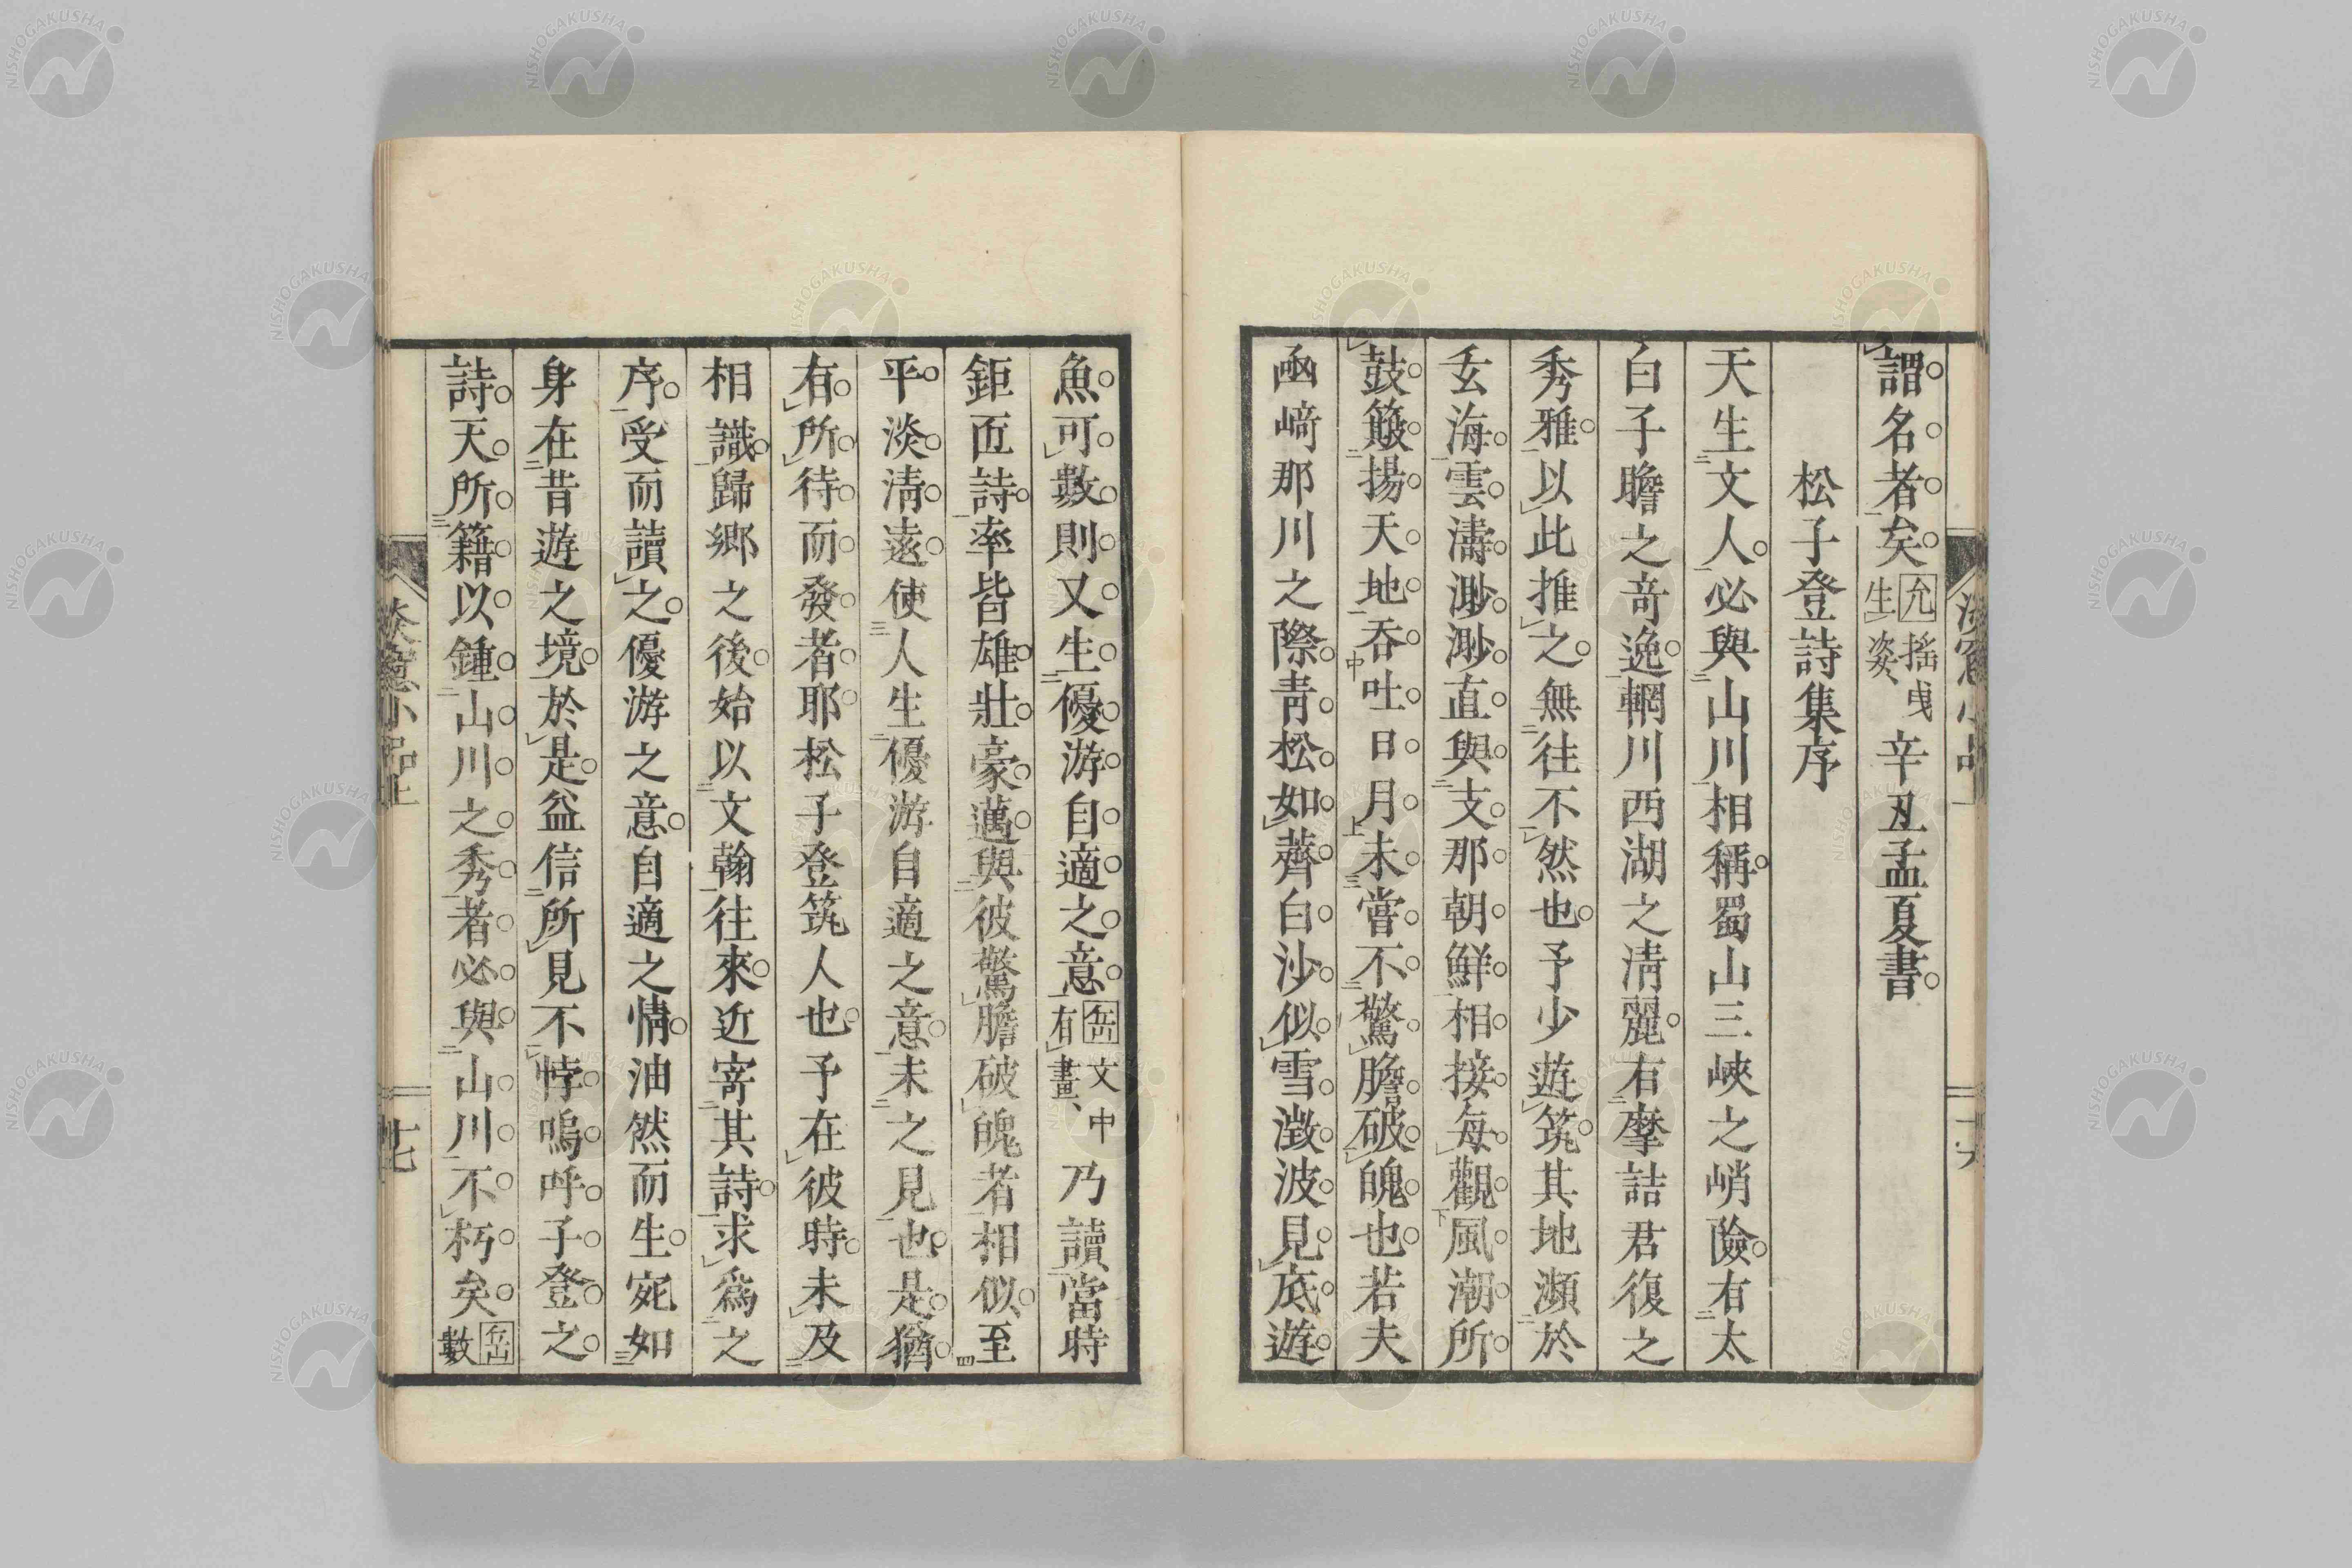 謂名者矣 允生 搖曳姿 辛丑孟夏書
松子登詩集序
天生文人必與山川相稱蜀山三峽之峭險有太
白子瞻之奇逸輞川西湖之淸麗有摩詰君復之
秀雅以此推之無往不然也予少遊筑其地瀕於
玄海雲濤渺渺直與支那朝鮮相接每觀風潮所
鼓簸揚天地呑吐日月未嘗不驚膽破魄也若夫
凾﨑那川之際靑松如薺白沙似雪澂波見底遊
魚可數則又生優游自適之意 岳 文中有畫 乃讀當時
鉅匠詩率皆雄壯豪邁與彼驚膽破魄者相似至
平淡淸遠使人生優游自適之意未之見也是猶
有所待而發者耶松子登筑人也予在彼時未及
相識歸鄉之後始以文翰往來近寄其詩求爲之
序受而讀之優游之意自適之情油然而生宛如
身在昔遊之境於是益信所見不悖嗚呼子登之
詩天所籍以鍾山川之秀者必與山川不朽矣 岳 數
十七
NISHOGAKUSHA